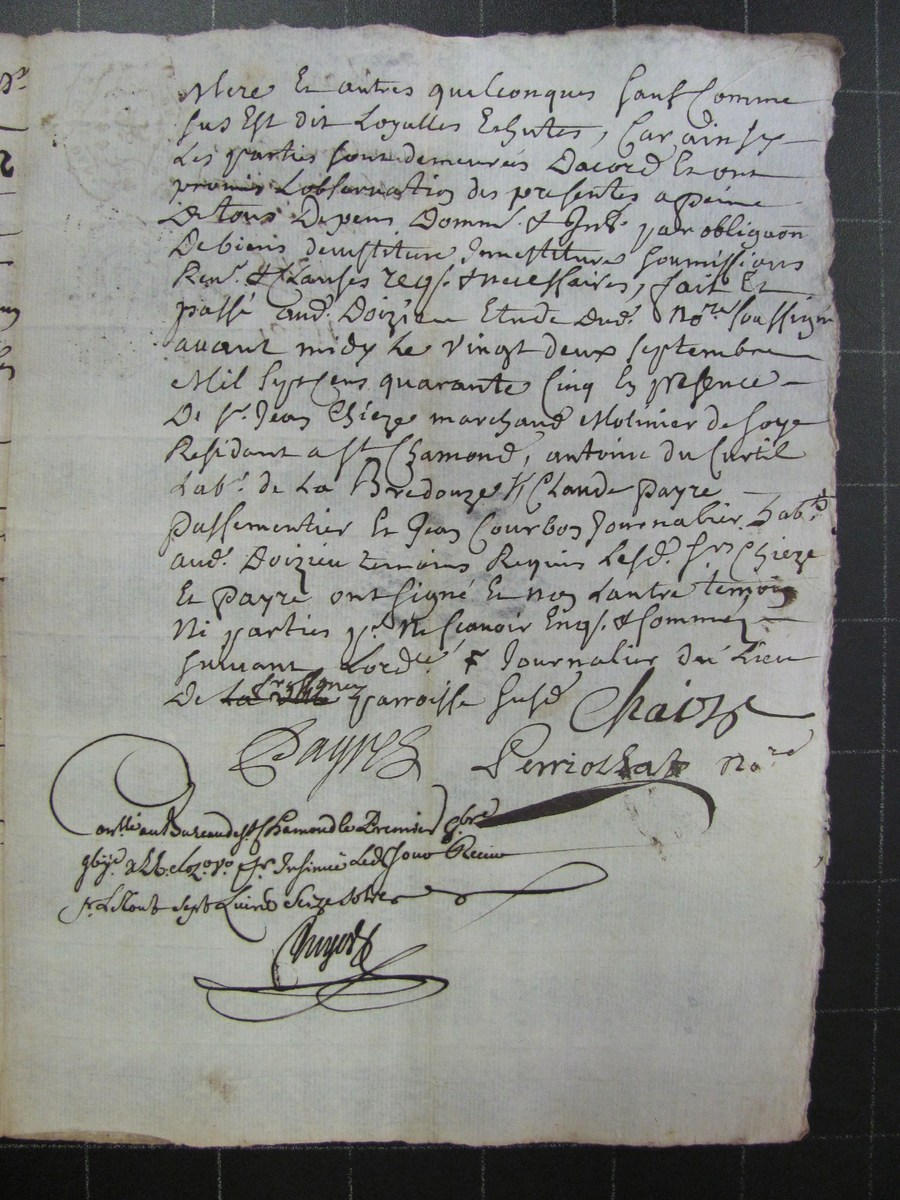 Mere Et autres quelconques Sauf Comme
sus Est dit Loyalles Echutes, Car ainsy
Les parties sont demeurés Dacord Et ont
promis Lobservation des presentes a peine
De tous Depens Domm. & Int. par obligaon
De biens devestiture Investiture soumissions
Ren. & Clauses req. & necessaires, fait Et
passé aud. Doizieu Etude dud. Nore soussigné
avant midy Le vingt deux septembre
Mil septcens quarante Cinq En presence
De Sr. Jean Chieze marchand Molinier de soye
Residant a St Chamond, antoine du Curtil
Lab. de La Bredouze Claude payre
passementier Et Jean Courbon Journalier hab.ts
aud. Doizieu temoins Requis Lesd. Srs Chieze
Et payre ont signé Et non Lautre temoin
Ni parties pr. Ne scavoir Enq. & somméz
suivant Lordce Journalier du Lieu
De parroisse susd
Chaize
Payre
Perriolhat Nore
Conlle au Bureau de St Chamond le Premier 8bre
Insinué Led Jour Receu
sept Livres seize sols